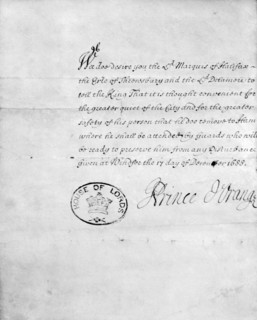 We doe desire you the Ld Marquis of Halifax
the Erle of Shrewsbury and the Ld Delamere to
tell the King That it is thought convenient for
the greater quiet of the City and for the greater
safety of his person that he doe remove to Ham
where he shall be attended by Guards who will
be ready to preserve him from any Disturbance
given at Windsor the 17 day of December 1688.
Prince d'Orange
HOUSE OF LORDS